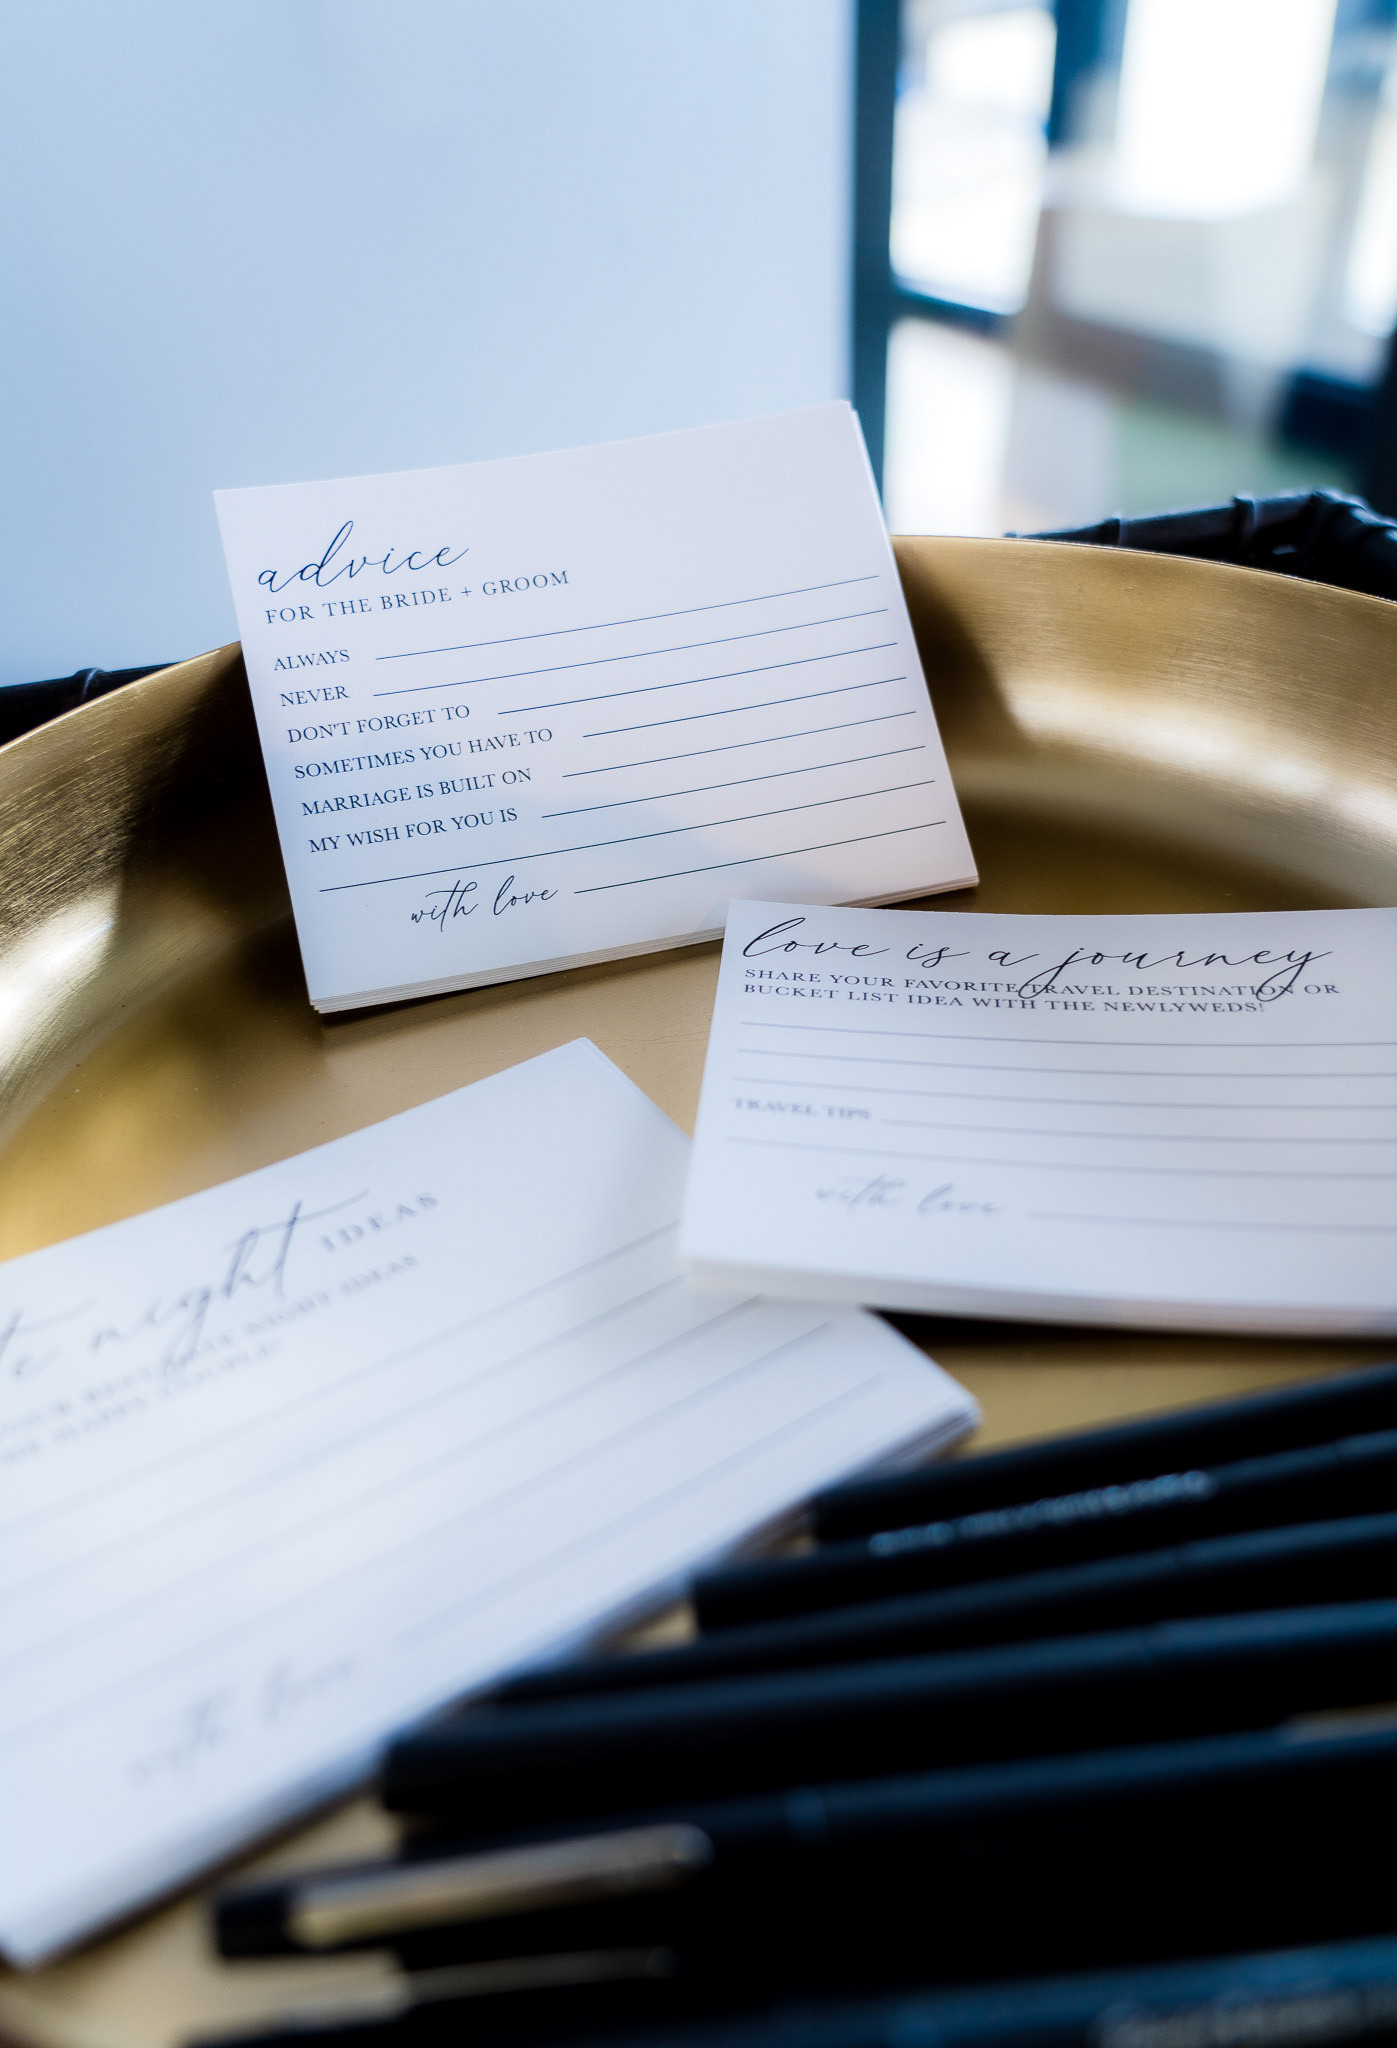 advice
FOR THE BRIDE + GROOM
ALWAYS
NEVER
DON'T FORGET TO
SOMETIMES YOU HAVE TO
MARRIAGE IS BUILT ON
MY WISH FOR YOU IS
with love
love is a journey
SHARE YOUR FAVORITE TRAVEL DESTINATION OR
BUCKET LIST IDEA WITH THE NEWLYWEDS!
TRAVEL TIPS
with love
night IDEAS
NIGHT IDEAS
with love